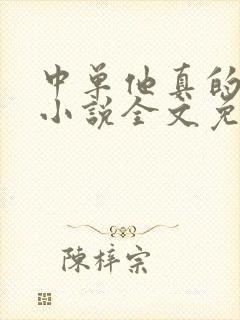 中单他真的
小说全文免
陈梓宗